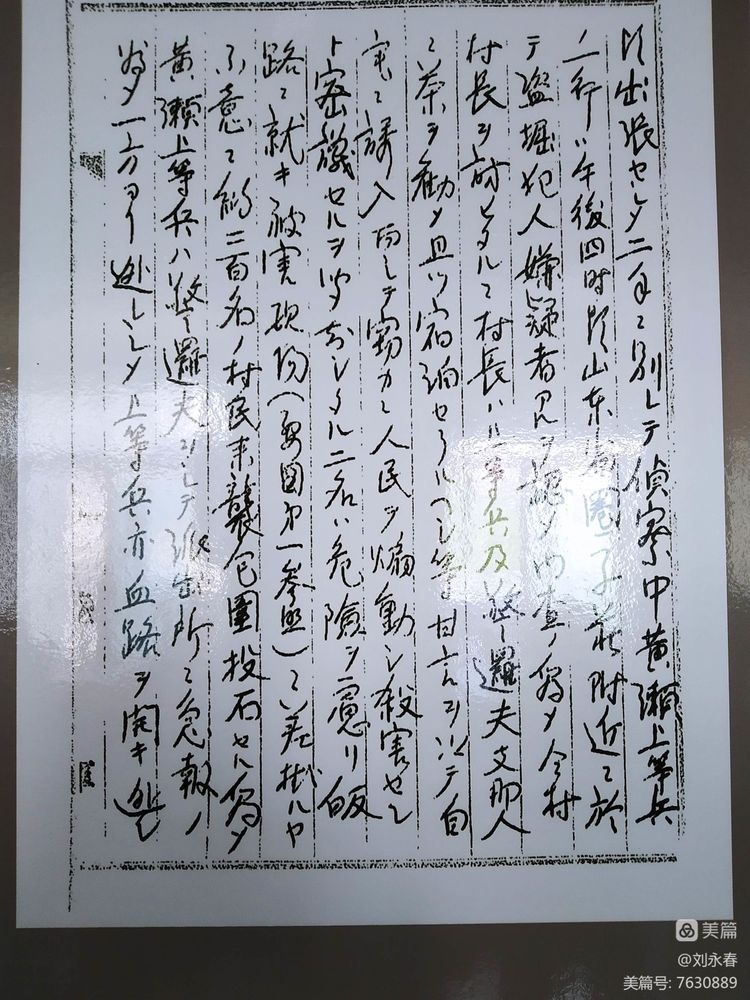 出張セシメ二手ニ別レテ偵察中黄瀬上等兵
ノ一行ハ午後四時頃山東省圏子荘附近ニ於
テ盗掘犯人嫌疑者アルヲ認メ内査ノ為メ仝村
村長ヲ訪ヒタルニ村長ハ上等兵及警邏夫支那人
ニ茶ヲ勧メ且ツ宿泊セラルヘシ等甘言ヲ以テ自
宅ニ誘入而シテ窃カニ人民ヲ煽動シ殺害セン
ト密議セルヲ察知シタル二名ハ危険ヲ慮リ皈
路ニ就キ被害現場（要図第一参照）ニ差掛ルヤ
不意ニ約二百名ノ村民来襲包囲投石セル為メ
黄瀬上等兵ハ警邏夫ヲシテ派出所ニ急報ノ
為メ一方ヨリ逃レシメ上等兵亦血路ヲ開キ逃レ
美篇
@刘永春
美篇号: 7630889